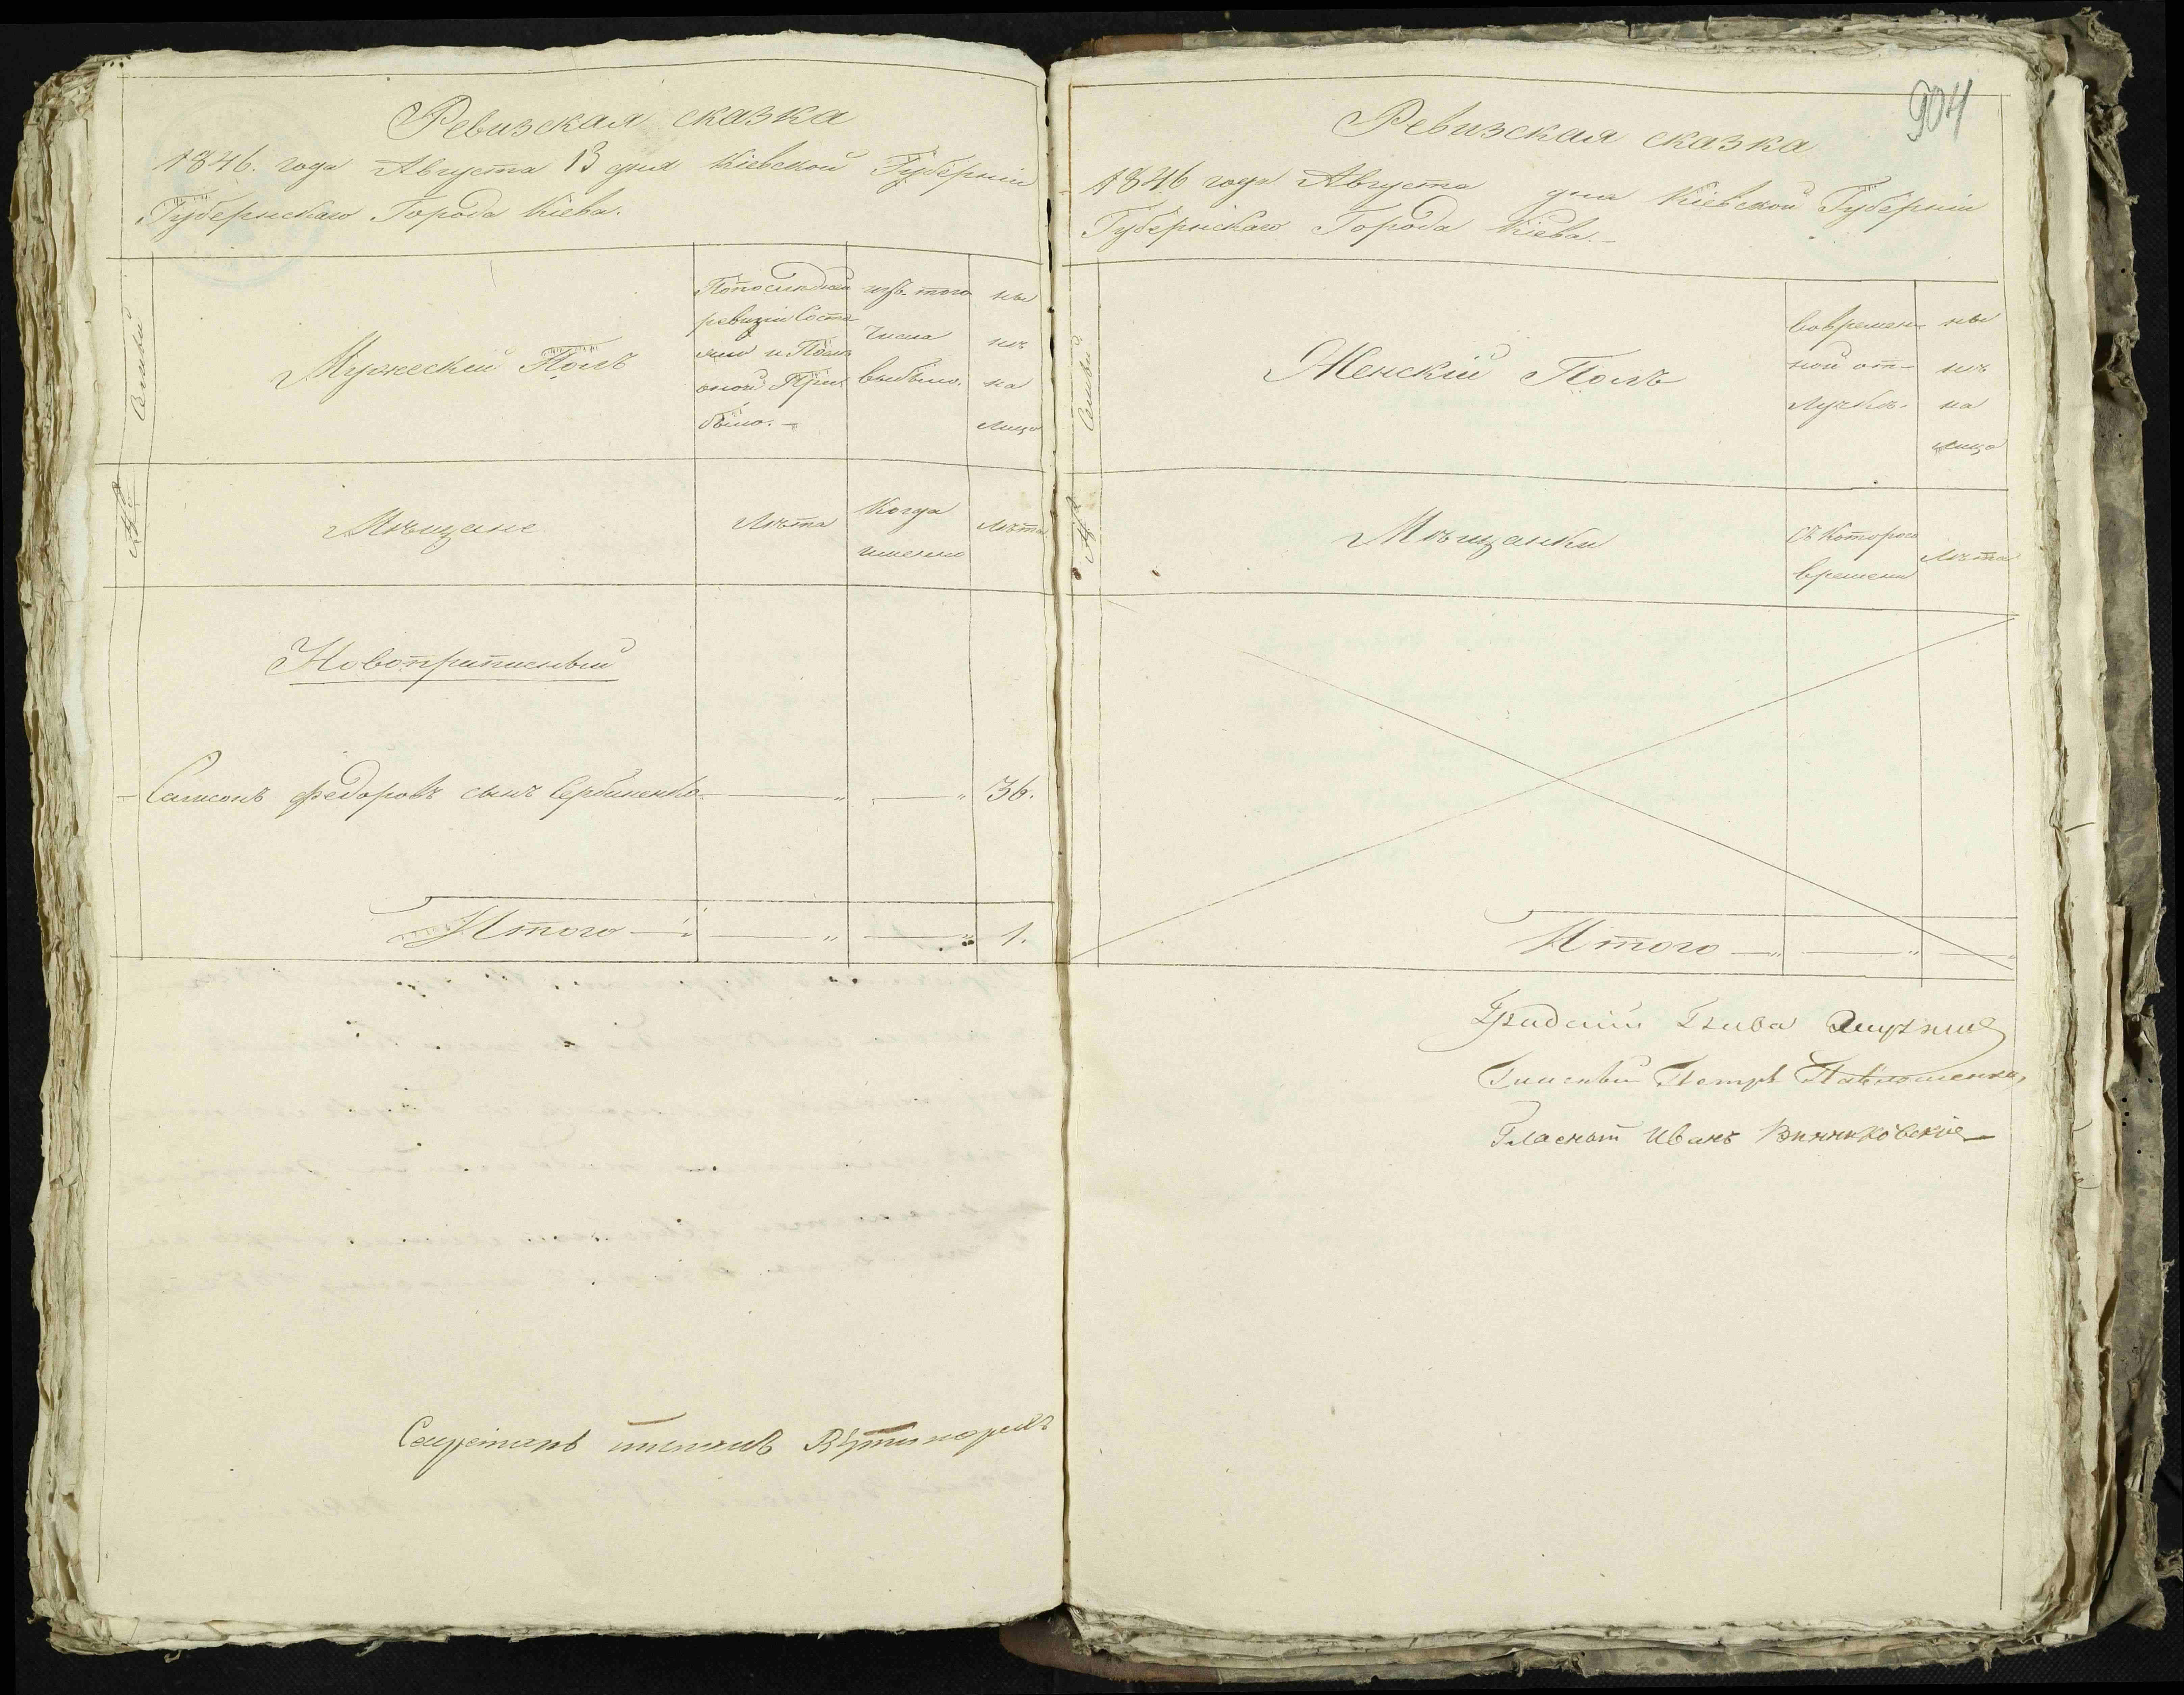 Ревизская сказка
1846. года Августа 13 дня Кіевской Губерніи
Губернскаго Города Кіева.
№ Семьи
Мужескій Полъ
По последней
ревизіи состо
яло и После
оной При
было.
изъ того
числа
выбыло.
ны
нѣ
на
лицо
Мѣщане
Лѣта
Когда
именно
Лѣта
Новоприписный
Самсонъ Федоровъ сынъ Сербиненко 36.
Итого 1.
Секретарь
904
Ревизская сказка
1846 года Августа дня Кіевской Губерніи
Губернскаго Города Кіева.
№ Семьи
Женскій Полъ
Вовремен-
ной от-
лучкѣ.
ны
нѣ
на
лицо
Мѣщанки
Съ котораго
времени
Лѣта
Итого
Градскій Глава
Гласный Петръ
Гласный Иванъ Винниковскій